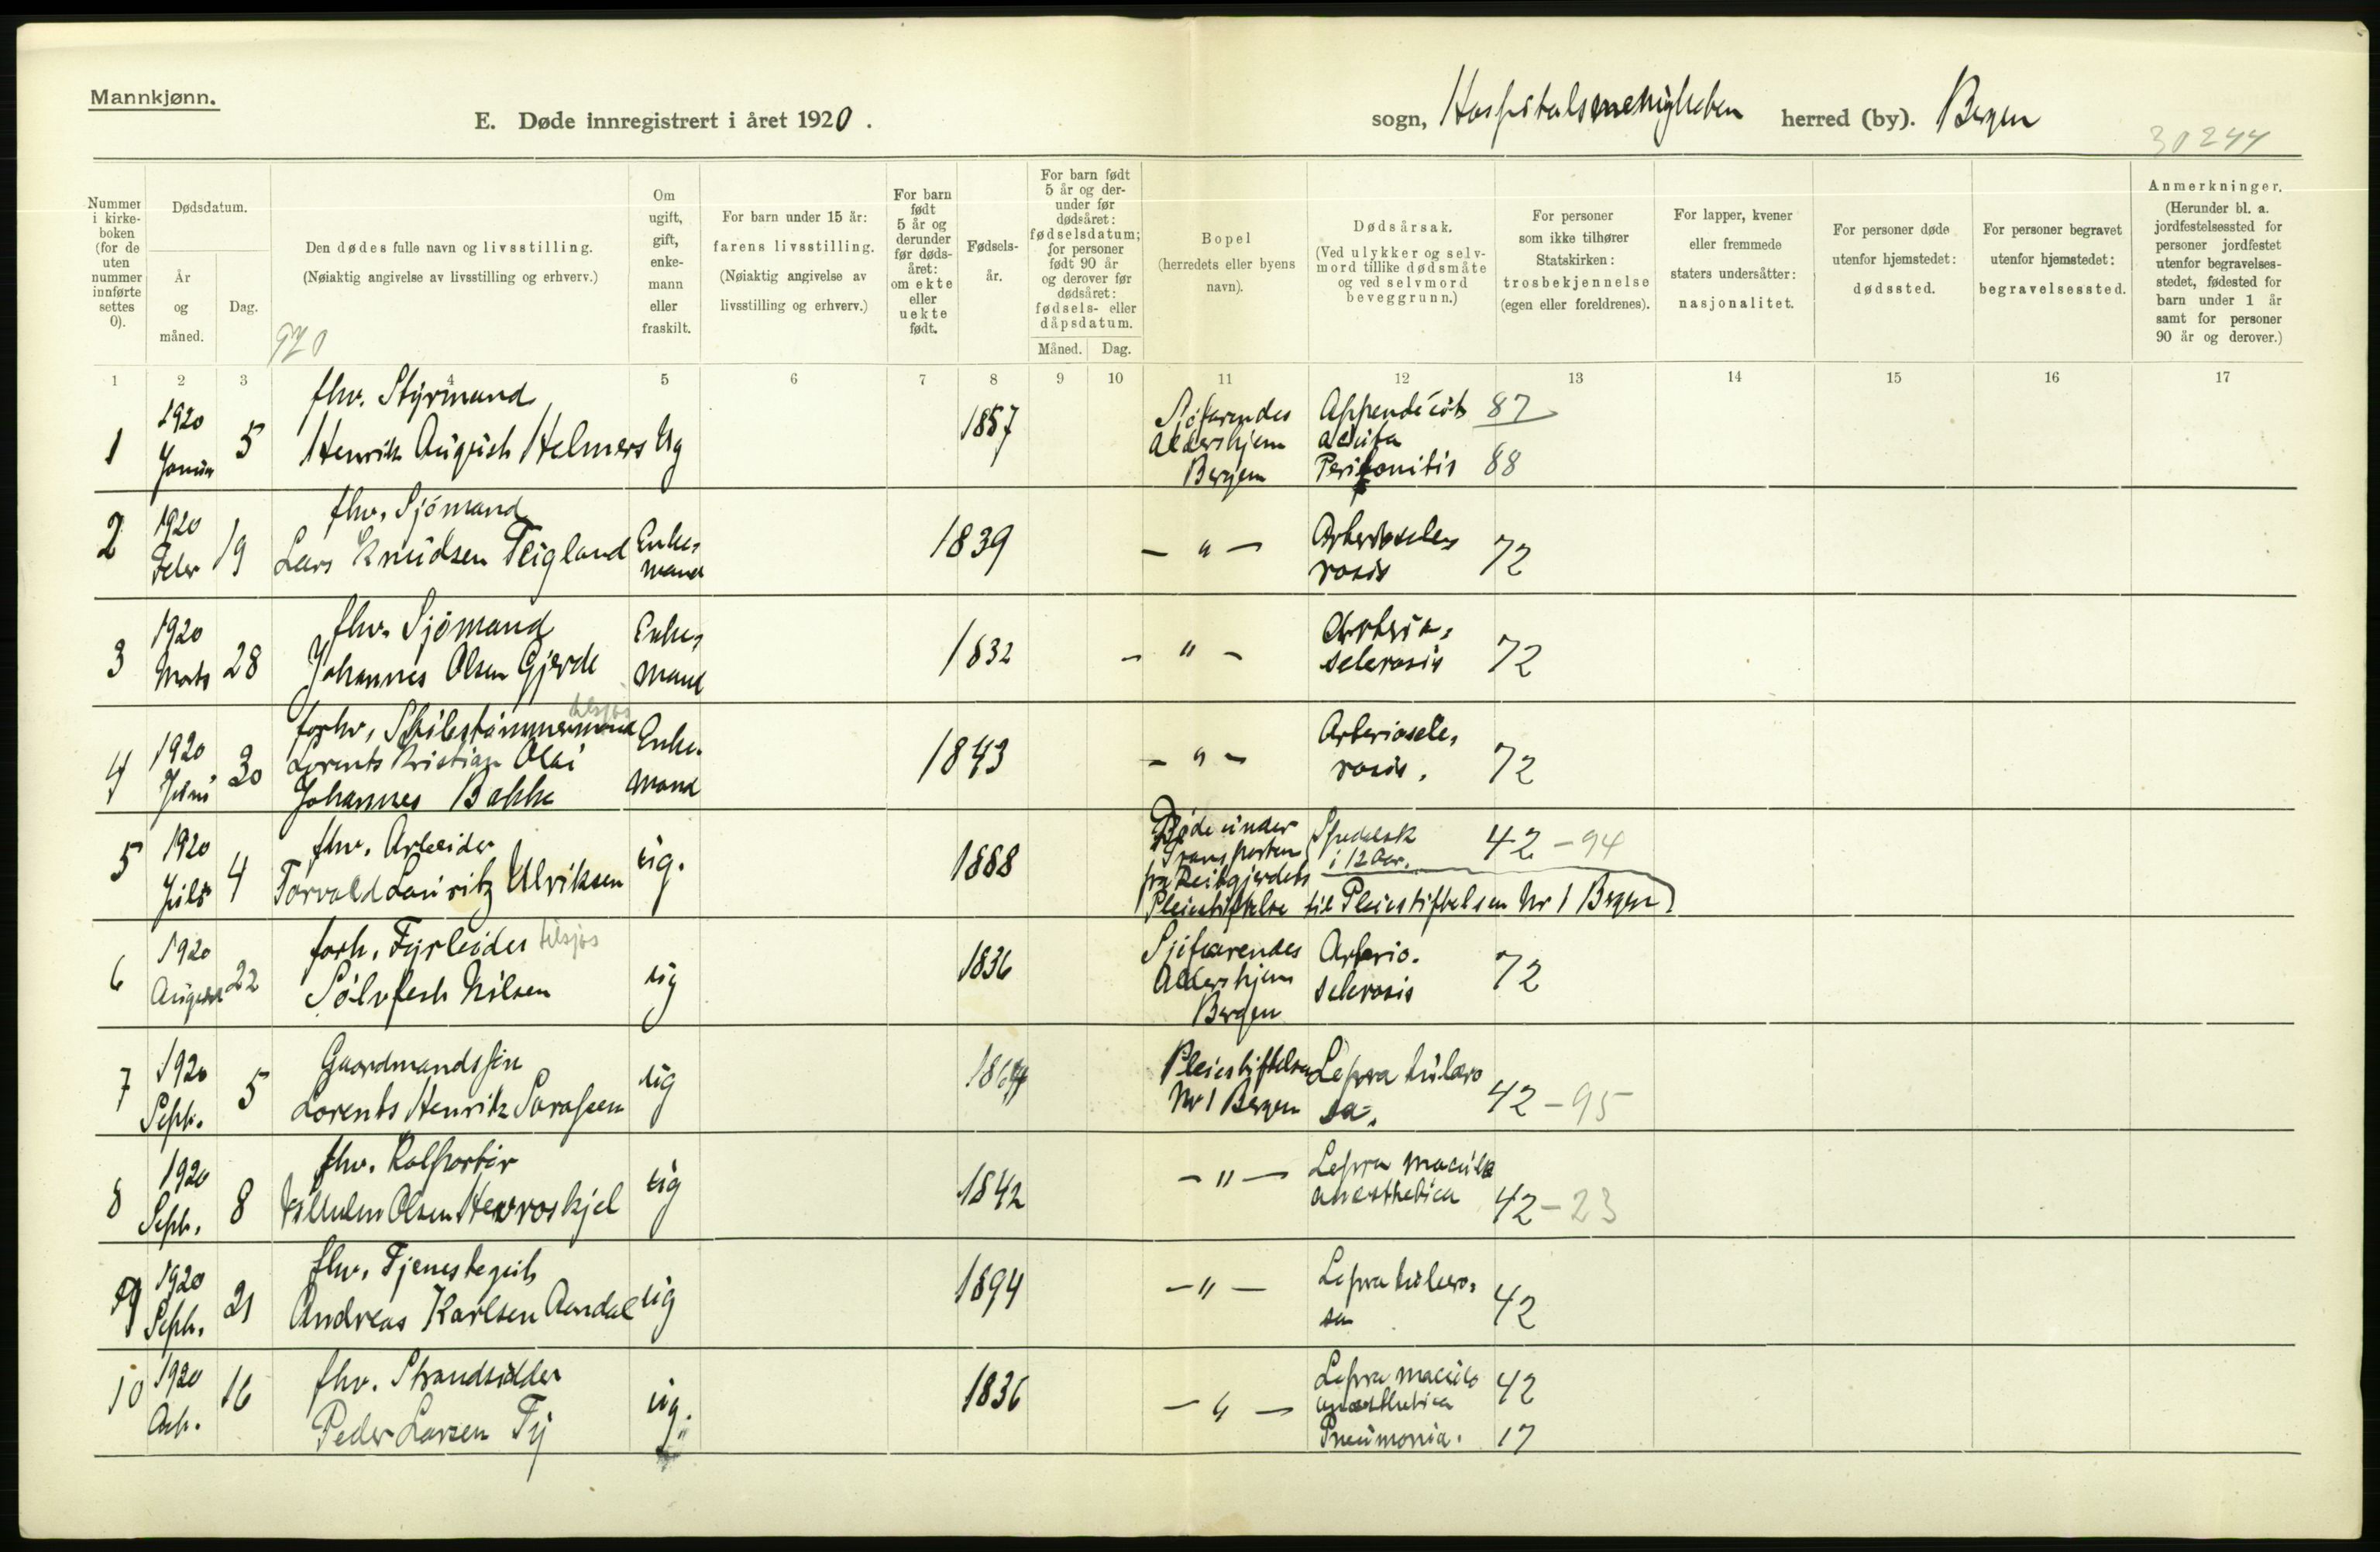 Mannkjønn.
E. Døde innregistrert i året 1920.
sogn, Hospitalsmenigheten herred (by). Bergen
30244
Nummer i kirke-boken (for de uten nummer innførte settes 0).
Dødsdatum.
År og måned.
Dag.
Den dødes fulle navn og livsstilling.
(Nøiaktig angivelse av livsstilling og erhverv.)
920
Om ugift, gift, enke-mann eller fraskilt.
For barn under 15 år: farens livsstilling.
(Nøiaktig angivelse av livsstilling og erhverv.)
For barn født 5 år og derunder før døds-året: om ekte eller uekte født.
Fødsels-år.
For barn født 5 år og der-under før dødsåret: fødselsdatum; for personer født 90 år og derover før dødsåret: fødsels- eller dåpsdatum.
Måned. Dag.
Bopel (herredets eller byens navn).
Dødsårsak.
(Ved ulykker og selv-mord tillike dødsmåte og ved selvmord beveggrunn.)
For personer som ikke tilhører Statskirken: trosbekjennelse (egen eller foreldrenes).
For lapper, kvener eller fremmede staters undersåtter: nasjonalitet.
For personer døde utenfor hjemstedet: dødssted.
For personer begravet utenfor hjemstedet: begravelsessted.
Anmerkninger.
(Herunder bl. a. jordfestelsessted for personer jordfestet utenfor begravelses-stedet, fødested for barn under 1 år samt for personer 90 år og derover.)
1 2 3 4 5 6 7 8 9 10 11 12 13 14 15 16 17
1 1920 Januar 5 fhv. Styrmand Henrik August Helmers Ug 1857 Sjøfarendes Aldershjem Bergen Appendicit acuta 87 Peritonitis 88
2 1920 Febr 19 fhv. Sjómand Lars Knudsen Teigland Enke-mand 1839 — " — Arterioscle-rosis 72
3 1920 Marts 28 fhv. Sjómand Johannes Olsen Gjerde Enke-mand 1832 — " — Arterio-sclerosis 72
4 1920 Juni 30 forhv. Skibstømmermand tilsjøs Lorents Kristian Olai Johannes Bakke Enke-mand 1843 — " — Arterioscle-rosis. 72
5 1920 Juli 4 fhv. Arbeider Torvald Lauritz Ulriksen ug. 1888 Døde under Transporten fra Reitgjerdets Pleiestiftelse til Pleiestiftelsen Nr 1 Bergen Spedalsk i 12 Aar. 42 - 94
6 1920 August 22 forh. Fyrbøder tilsjøs Sølvfest Nilsen ug 1836 Sjøfarendes Aldershjem Bergen Arterio-sclerosis 72
7 1920 Septr. 5 Gaardmandssøn Lorents Henrik ug Pleiestiftelsen Nr 1 Bergen Lepra tubero sa. 42 - 95
8 1920 Septr. 8 fhv. Kolportør Vilhelm Olsen ug 1842 — " — Lepra maculo anesthetica 42 - 23
9 1920 Septr. 21 fhv. Tjenestegut Andreas Karlsen Aandal ug 1894 — " — Lepra tubero-sa 42
10 1920 16 fhv. Strandsidder Peder Larsen ug. 1836 — " — Lepra maculo anesthetica 42 Pneumonia. 17